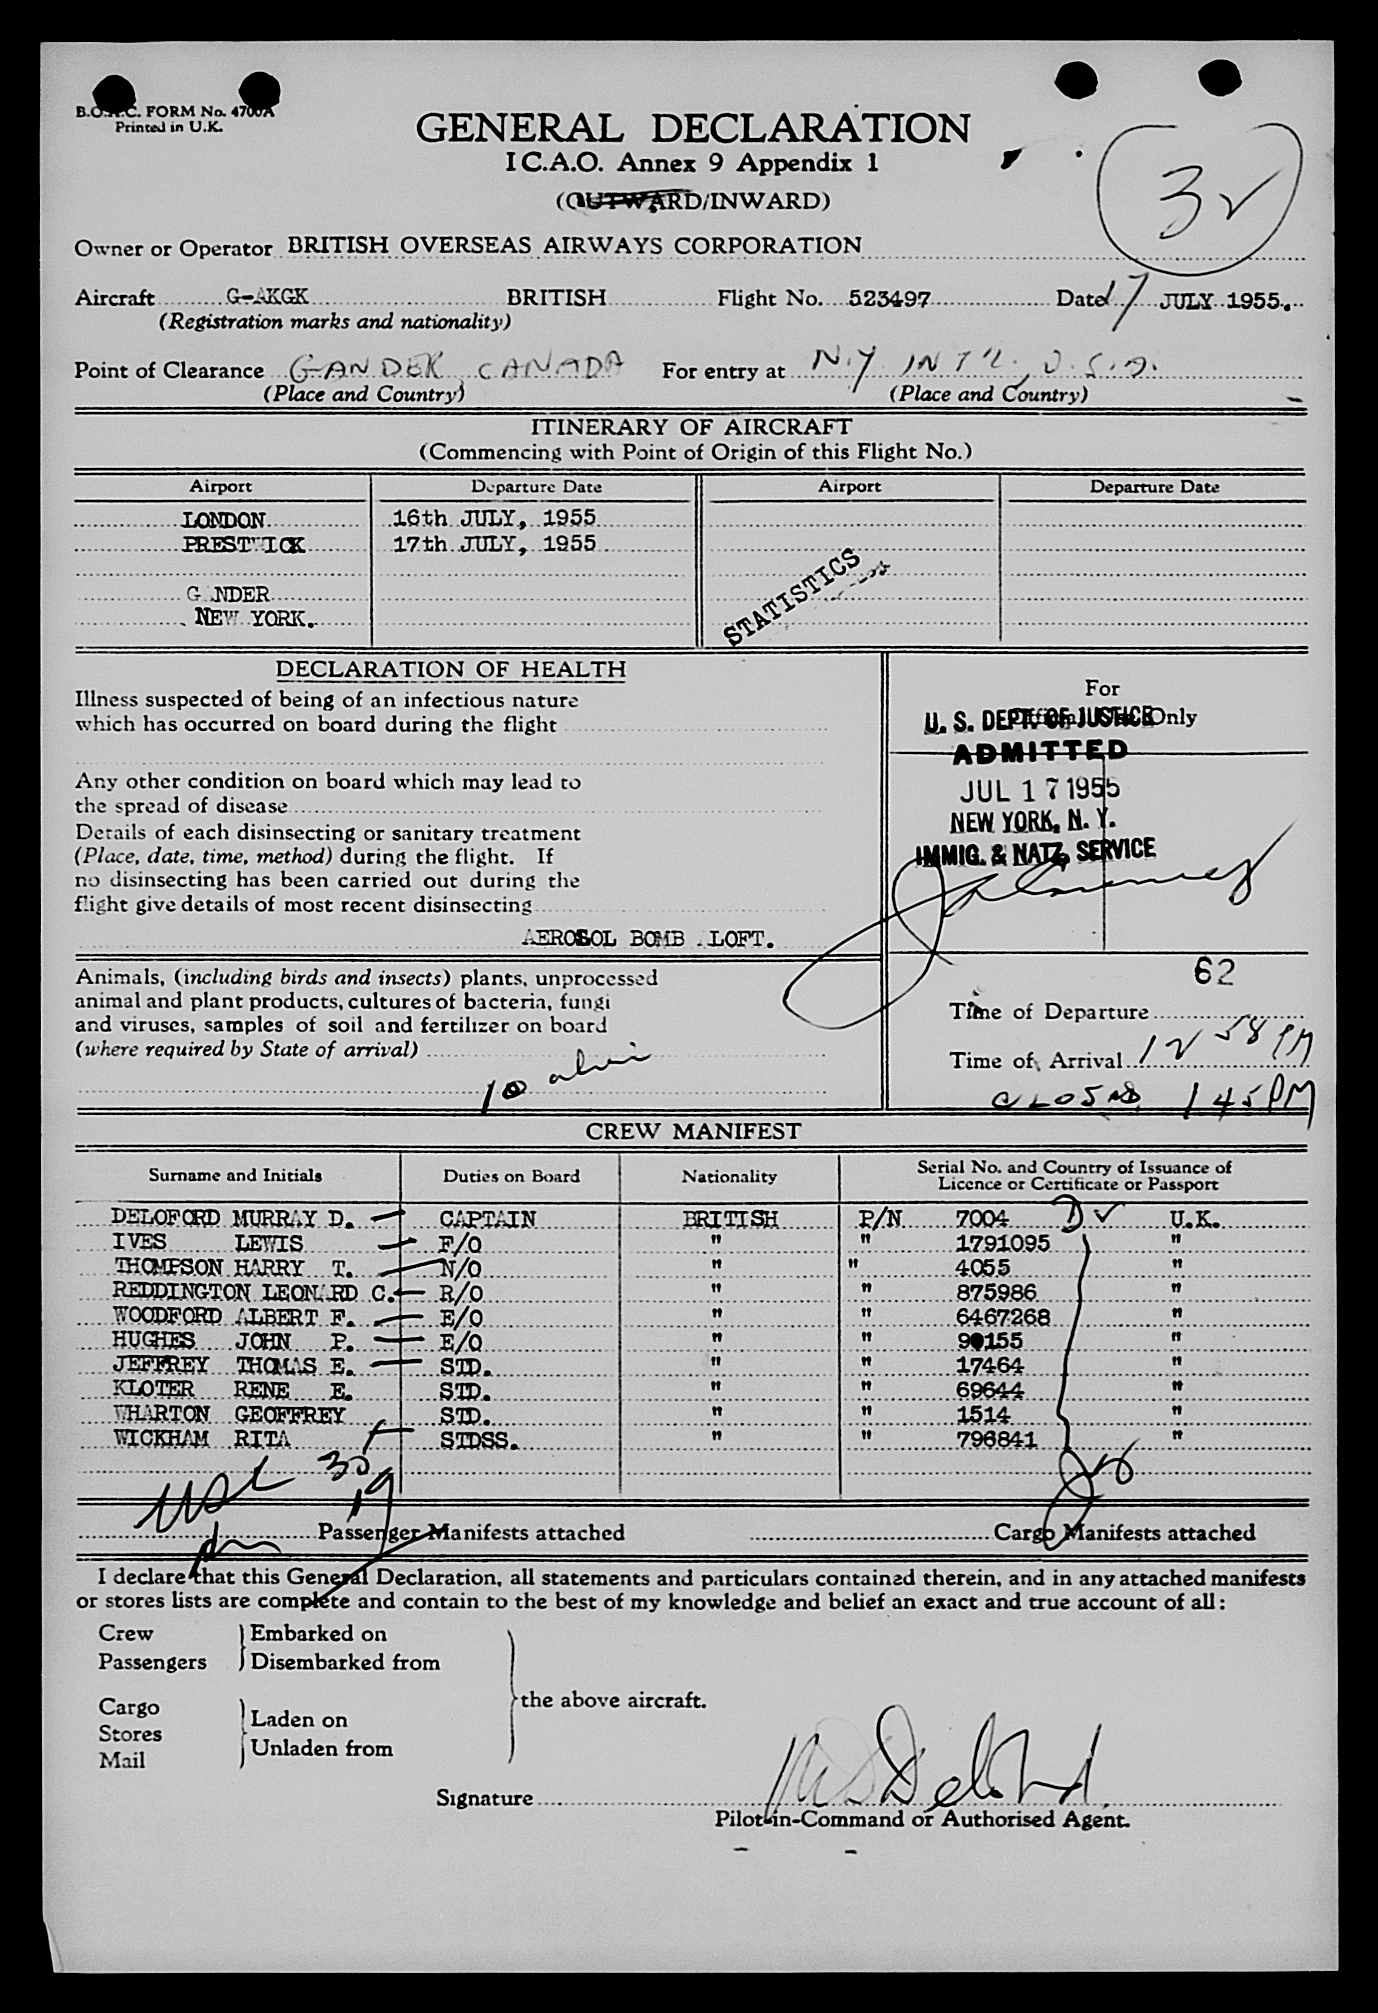 B.O.A.C. FORM No. 4700A
Printed in U.K.
GENERAL DECLARATION
I C.A.O. Annex 9 Appendix 1
(OUTWARD/INWARD)
3
Owner or Operator BRITISH OVERSEAS AIRWAYS CORPORATION
Aircraft G-AKGK BRITISH Flight No. 523497 Date 17 JULY 1955.
(Registration marks and nationality)
Point of Clearance GANDER CANADA For entry at N.Y. INT'L, U.S.A.
(Place and Country) (Place and Country)
ITINERARY OF AIRCRAFT
(Commencing with Point of Origin of this Flight No.)
Airport Departure Date Airport Departure Date
LONDON 16th JULY, 1955
PRESTWICK 17th JULY, 1955
GANDER
NEW YORK.
STATISTICS
DECLARATION OF HEALTH
Illness suspected of being of an infectious nature
which has occurred on board during the flight
Any other condition on board which may lead to
the spread of disease
Details of each disinsecting or sanitary treatment
(Place, date, time, method) during the flight. If
no disinsecting has been carried out during the
flight give details of most recent disinsecting
AEROSOL BOMB ALOFT.
Animals, (including birds and insects) plants, unprocessed
animal and plant products, cultures of bacteria, fungi
and viruses, samples of soil and fertilizer on board
(where required by State of arrival)
10
For
Official Use Only
U. S. DEPT. OF JUSTICE
ADMITTED
JUL 17 1955
NEW YORK, N. Y.
IMMIG. & NATZ. SERVICE
62
Time of Departure
Time of Arrival 12 58 PM
CLOSED 145 PM
CREW MANIFEST
Surname and Initials Duties on Board Nationality Serial No. and Country of Issuance of
Licence or Certificate or Passport
DELOFORD MURRAY D. CAPTAIN BRITISH P/N 7004 U.K.
IVES LEWIS F/O " " 1791095 "
THOMPSON HARRY T. N/O " " 4055 "
REDDINGTON LEONARD C. R/O " " 875986 "
WOODFORD ALBERT F. E/O " " 6467268 "
HUGHES JOHN P. E/O " " 90155 "
JEFFREY THOMAS E. STD. " " 17464 "
KLOTER RENE E. STD. " " 69644 "
WHARTON GEOFFREY STD. " " 1514 "
WICKHAM RITA STDSS. " " 796841 "
30
19
Passenger Manifests attached Cargo Manifests attached
I declare that this General Declaration, all statements and particulars contained therein, and in any attached manifests
or stores lists are complete and contain to the best of my knowledge and belief an exact and true account of all:
Crew
Passengers
Embarked on
Disembarked from
Cargo
Stores
Mail
Laden on
Unladen from
the above aircraft.
Signature
Pilot-in-Command or Authorised Agent.